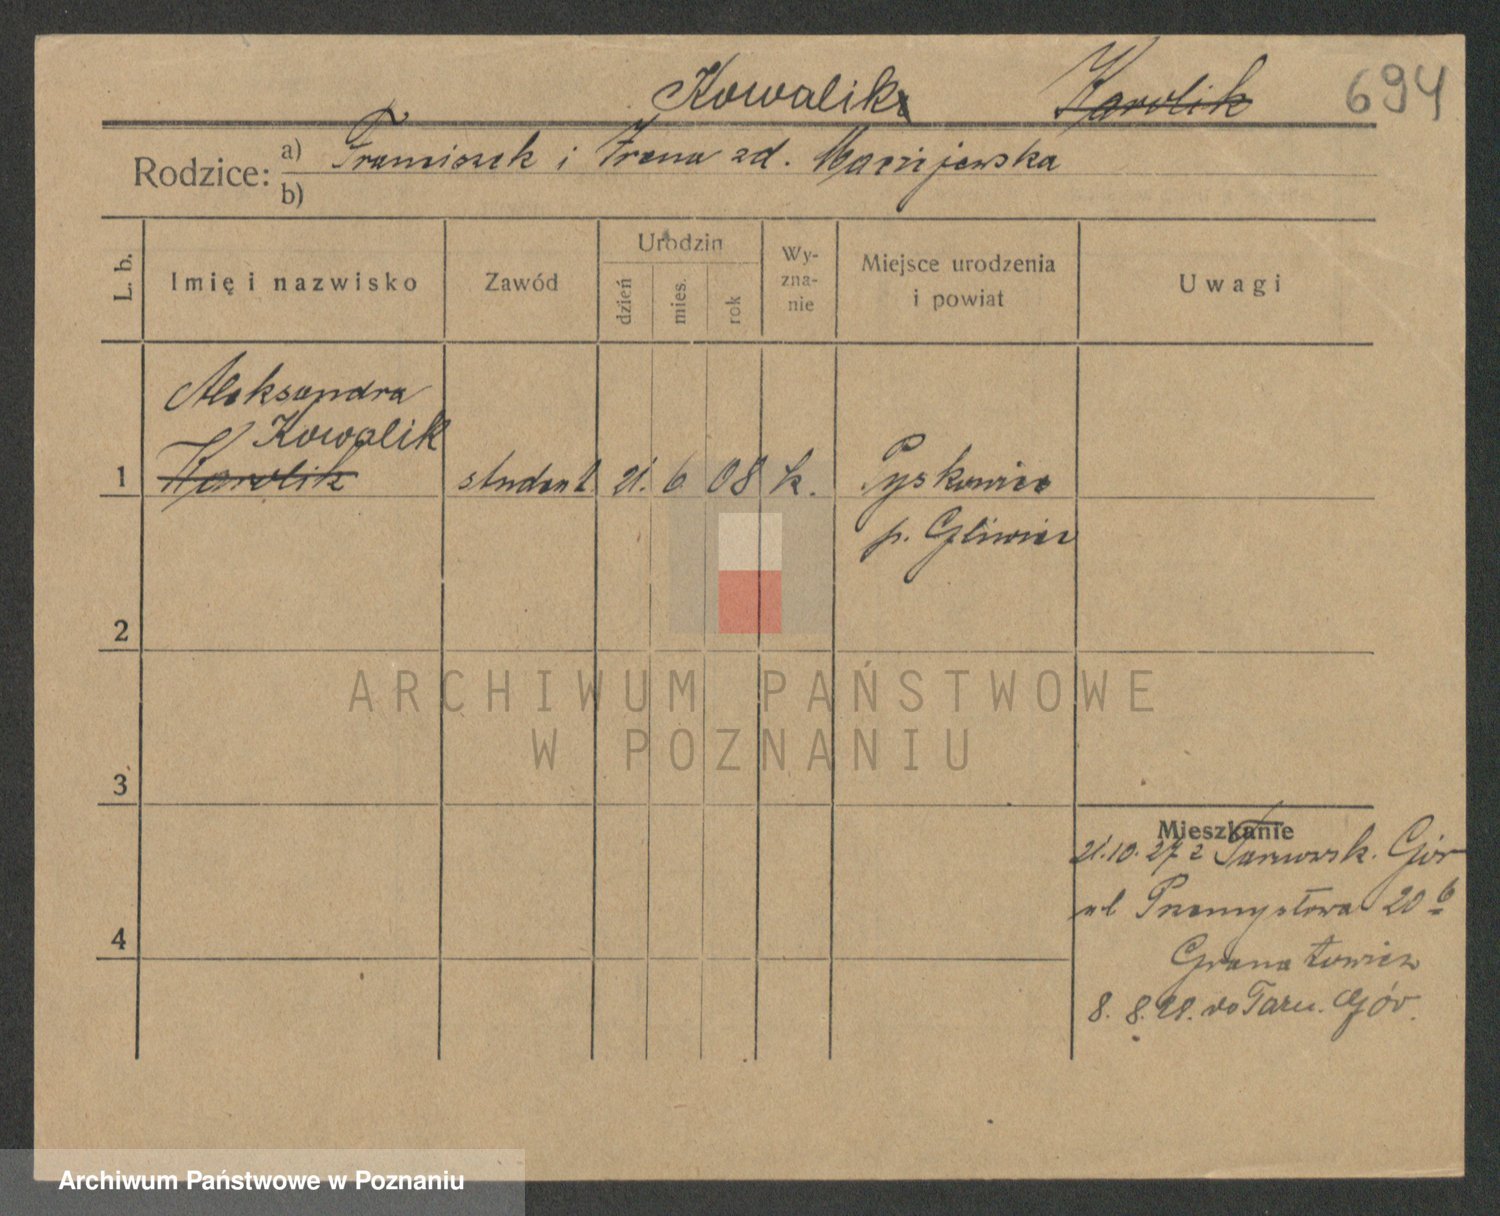 Kowalik Karolik 694
Rodzice: a) Franciszek i Irena zd. Maciejewska
b)
L. b. Imię i nazwisko Zawód Urodzin dzień mies. rok Wyznanie Miejsce urodzenia i powiat Uwagi
Aleksandra
Kowalik
1 Karolik student 21. 6 08 k. Pyskowice
p. Gliwice
2
ARCHIWUM PAŃSTWOWE
W POZNANIU
3
Mieszkanie
21.10.27 z Tarnowsk. Gór
ul Przemysłowa 20 6
4
8. 8. 28. do Tarn. Gór.
Archiwum Państwowe w Poznaniu